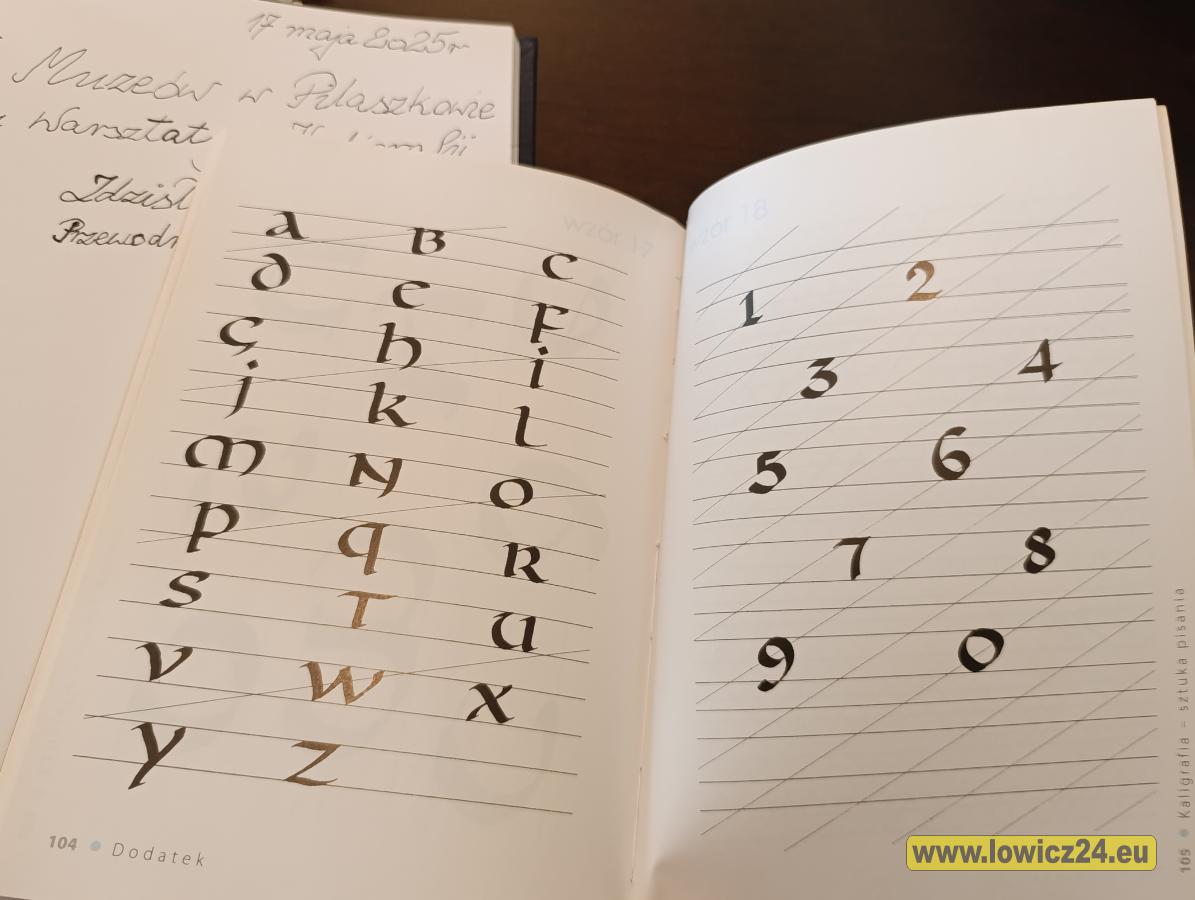 17 maja 2025r
Muzeów w Pilaszkowie
Warsztat
Zdzisł
Przewodn
wzór 17
a B C
d e F
G h i
j k l
m N o
p q R
s T u
v w x
y z
104 • Dodatek
wzór 18
1 2
3 4
5 6
7 8
9 0
Kaligrafia – sztuka pisania
105
www.lowicz24.eu